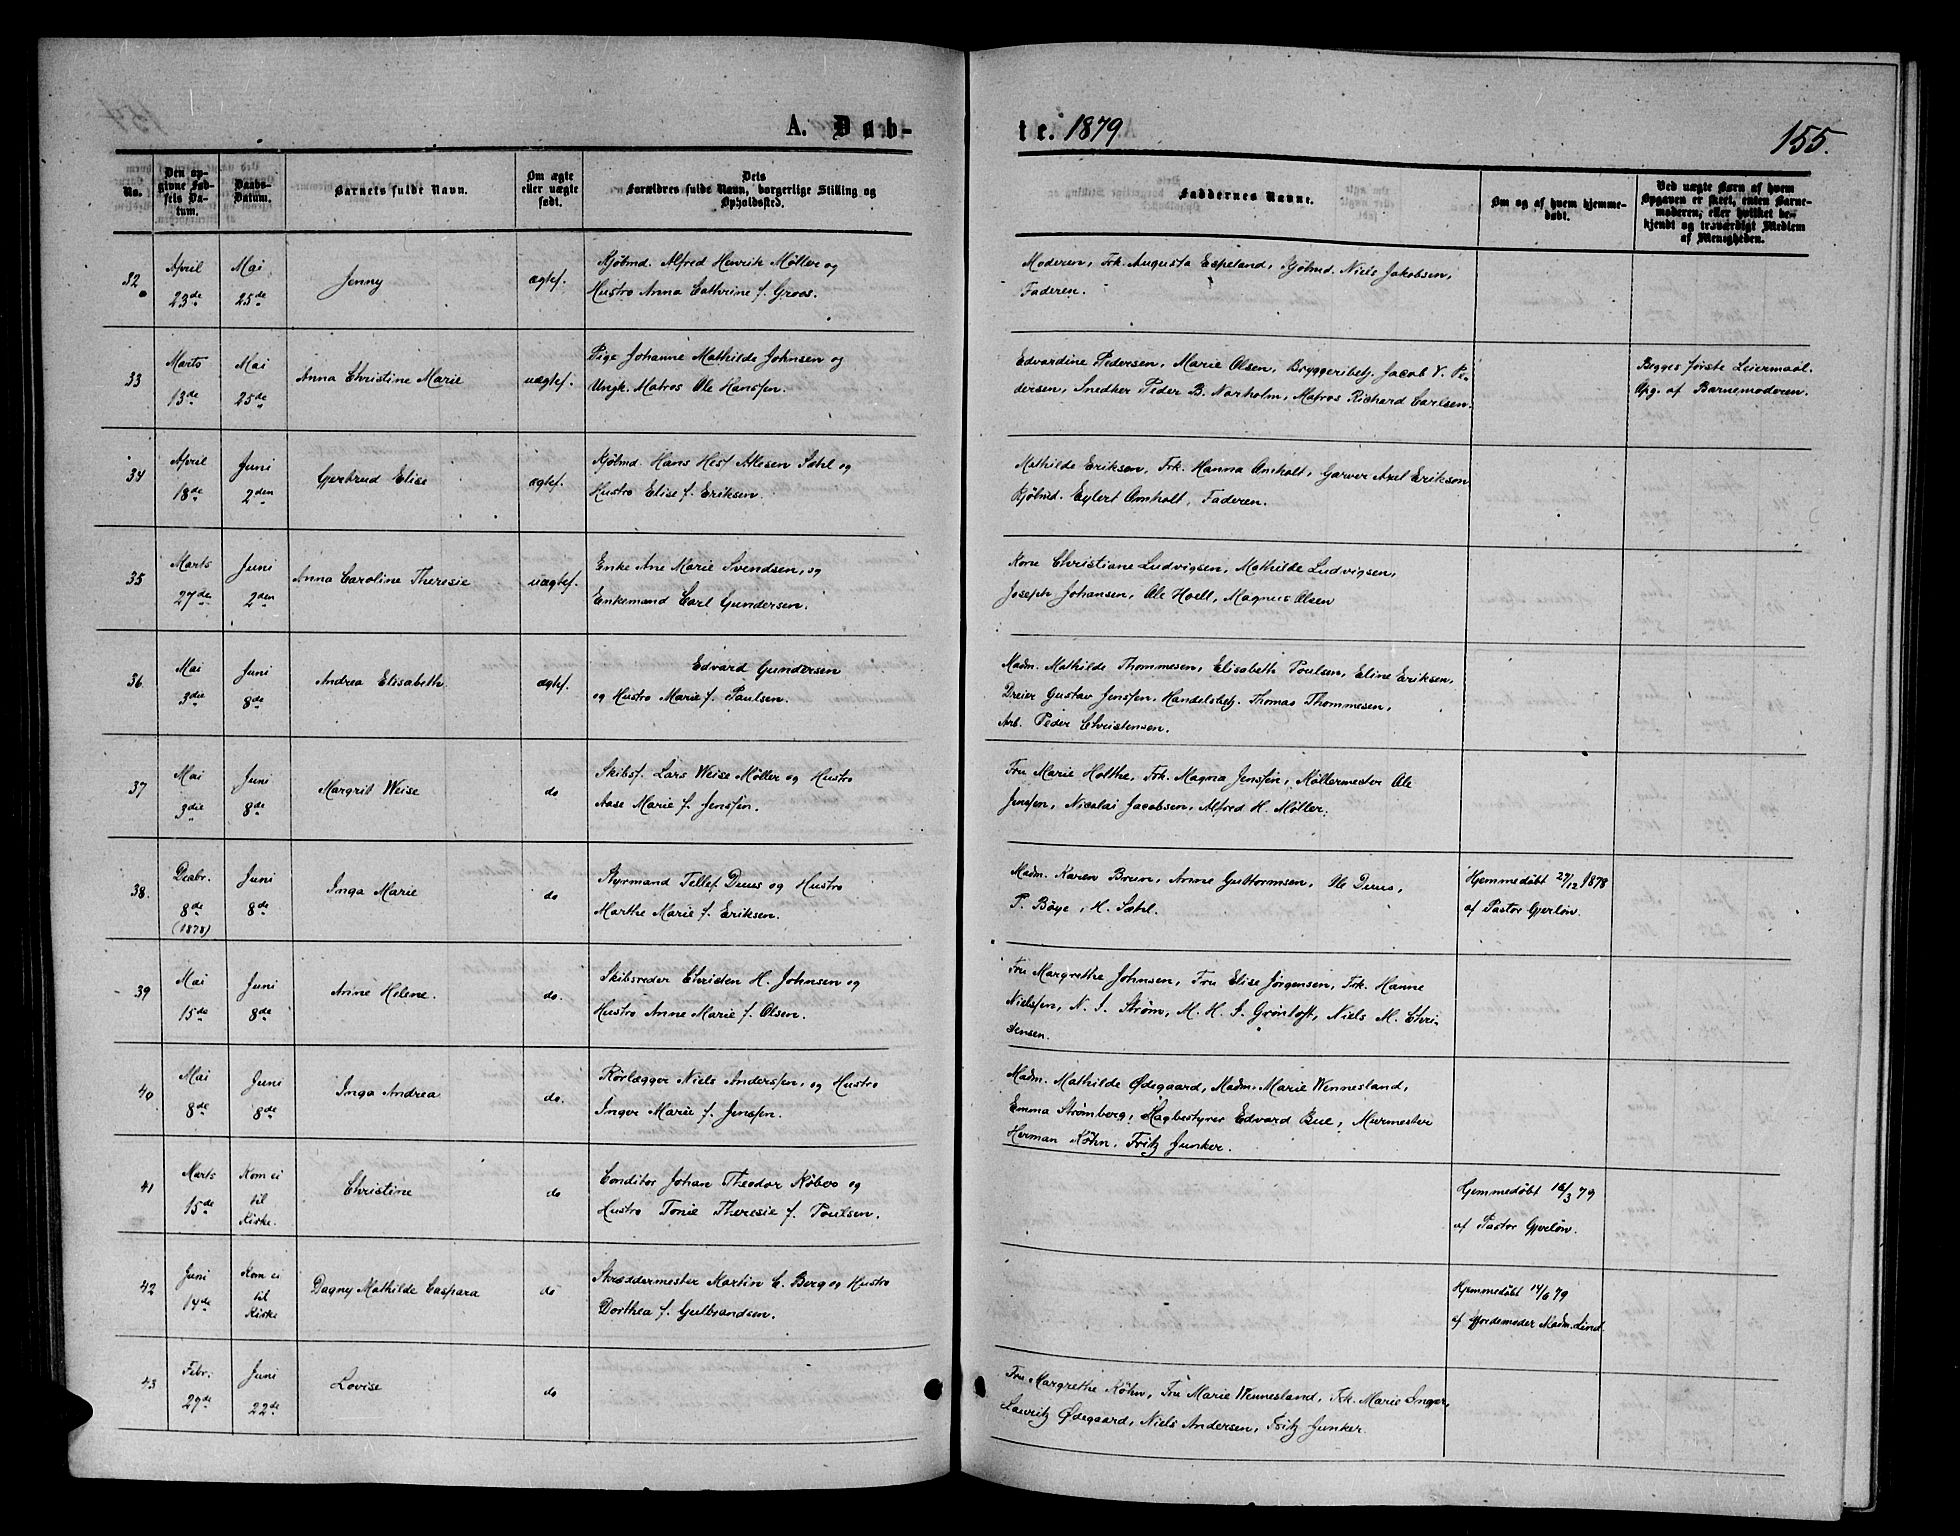 A. Døb-
te. 1879
155.
No.
Den op-
givne Fød-
sels Da-
tum.
Daabs-
Datum.
Barnets fulde Navn.
Om ægte
eller uægte
født.
Dets
Forældres fulde Navn, borgerlige Stilling og
Opholdssted.
Faddernes Navne.
Om og af hvem hjemme-
døbt.
Ved uægte Børn af hvem
Opgaven er skeet, enten Barne-
moderen, eller hvilket be-
kjendt og troværdigt Medlem
af Menigheden.
32 April 23de Mai 25de Jenny ægtef.
Kjøbmd. Alfred Henrik Møller og
Hustro Anna Cathrine f. Groos.
Moderen, Frk. Augusta Espeland, Kjøbmd. Niels Jakobsen,
Faderen.
33 Marts 13de Mai 25de Anna Christine Marie uægtef.
Pige Johanne Mathilde Johnsen og
Ungk. Matros Ole Hanssen.
Edvardine Pedersen, Marie Olsen, Bryggeribetj. Jacob V. Pe-
dersen, Snedker Peder B. Norholm, Matros Richard Carlsen.
Begges første Leiermaal.
Opg. af Barnemoderen.
34 April 18de Juni 2den Gjertrud Elise ægtef.
Kjøbmd. Hans Hest Allesen Sæhl og
Hustro Elise f. Eriksen.
Mathilde Eriksen, Frk. Hanna Omholt, Garver Axel Eriksen
Kjøbmd. Eylert Omholt, Faderen.
35 Marts 27de Juni 2den Anna Caroline Theresie uægtef.
Enke Ane Marie Svendsen, og
Enkemand Carl Gundersen.
Kone Christiane Ludvigsen, Mathilde Ludvigsen,
Joseph Johansen, Ole Hoell, Magnus Olsen
36 Mai 3die Juni 8de Andrea Elisabeth ægtef.
Edvard Gundersen
og Hustro Marie f. Paulsen.
Madm. Mathilde Thommesen, Elisabeth Poulsen, Eline Eriksen,
Dreier Gustav Jenssen, Handelsbetj. Thomas Thommesen,
Arb. Peder Christensen.
37 Mai 3die Juni 8de Margrit Weise do
Skibsf. Lars Weise Møller og Hustro
Aase Marie f. Jenssen.
Fru Marie Holthe, Frk. Magna Jenssen, Møllermester Ole
Jenssen, Nicolai Jacobsen, Alfred H. Møller.
38. Decbr. 8de (1878) Juni 8de Inga Marie do
Styrmand Tellef Duus og Hustro
Marthe Marie f. Eriksen.
Madm. Karen Brun, Anne Guttormsen, Ole Duus,
P. Bøye, H. Sæhl.
Hjemmedøbt 27/12 1878
af Pastor Gjerløw.
39 Mai 15de Juni 8de Anne Helene. do.
Skibsreder Christen H. Johnsen og
Hustro Anne Marie f. Olsen.
Fru Margrethe Johnsen, Fru Elise Jørgensen, Frk. Hanne
Nielsen, N. S. Strøm, M. H. S. Grøntoft, Niels M. Chri-
stensen.
40 Mai 8de Juni 8de Inga Andrea do.
Rørlægger Niels Anderssen, og Hustro
Inger Marie f. Jenssen.
Madm. Mathilde Ødegaard, Madm. Marie Wennesland,
Emma Strømberg, Fagbestyrer Edvard Bue, Murmester
Herman Köhn, Fritz Junker.
41 Marts 15de Kom ei til Kirke. Christine do
Conditor Johan Theodor Købvo og
Hustro Tonie Theresie f. Poulsen.
Hjemmedøbt 16/3 79
af Pastor Gjerløw.
42 Juni 14de Kom ei til Kirke Dagny Mathilde Caspara do
Skræddermester Martin C. Berg og Hustro
Dorthea f. Gulbrandsen.
Hjemmedøbt 14/6 79
af Gjordemoder Madm. Lind.
43 Febr. 27de Juni 22de Lovise do
Fru Margrethe Köhn, Fru Marie Wennesland, Frk. Marie Inger,
Lauritz Ødegaard, Niels Andersen, Fritz Junker.